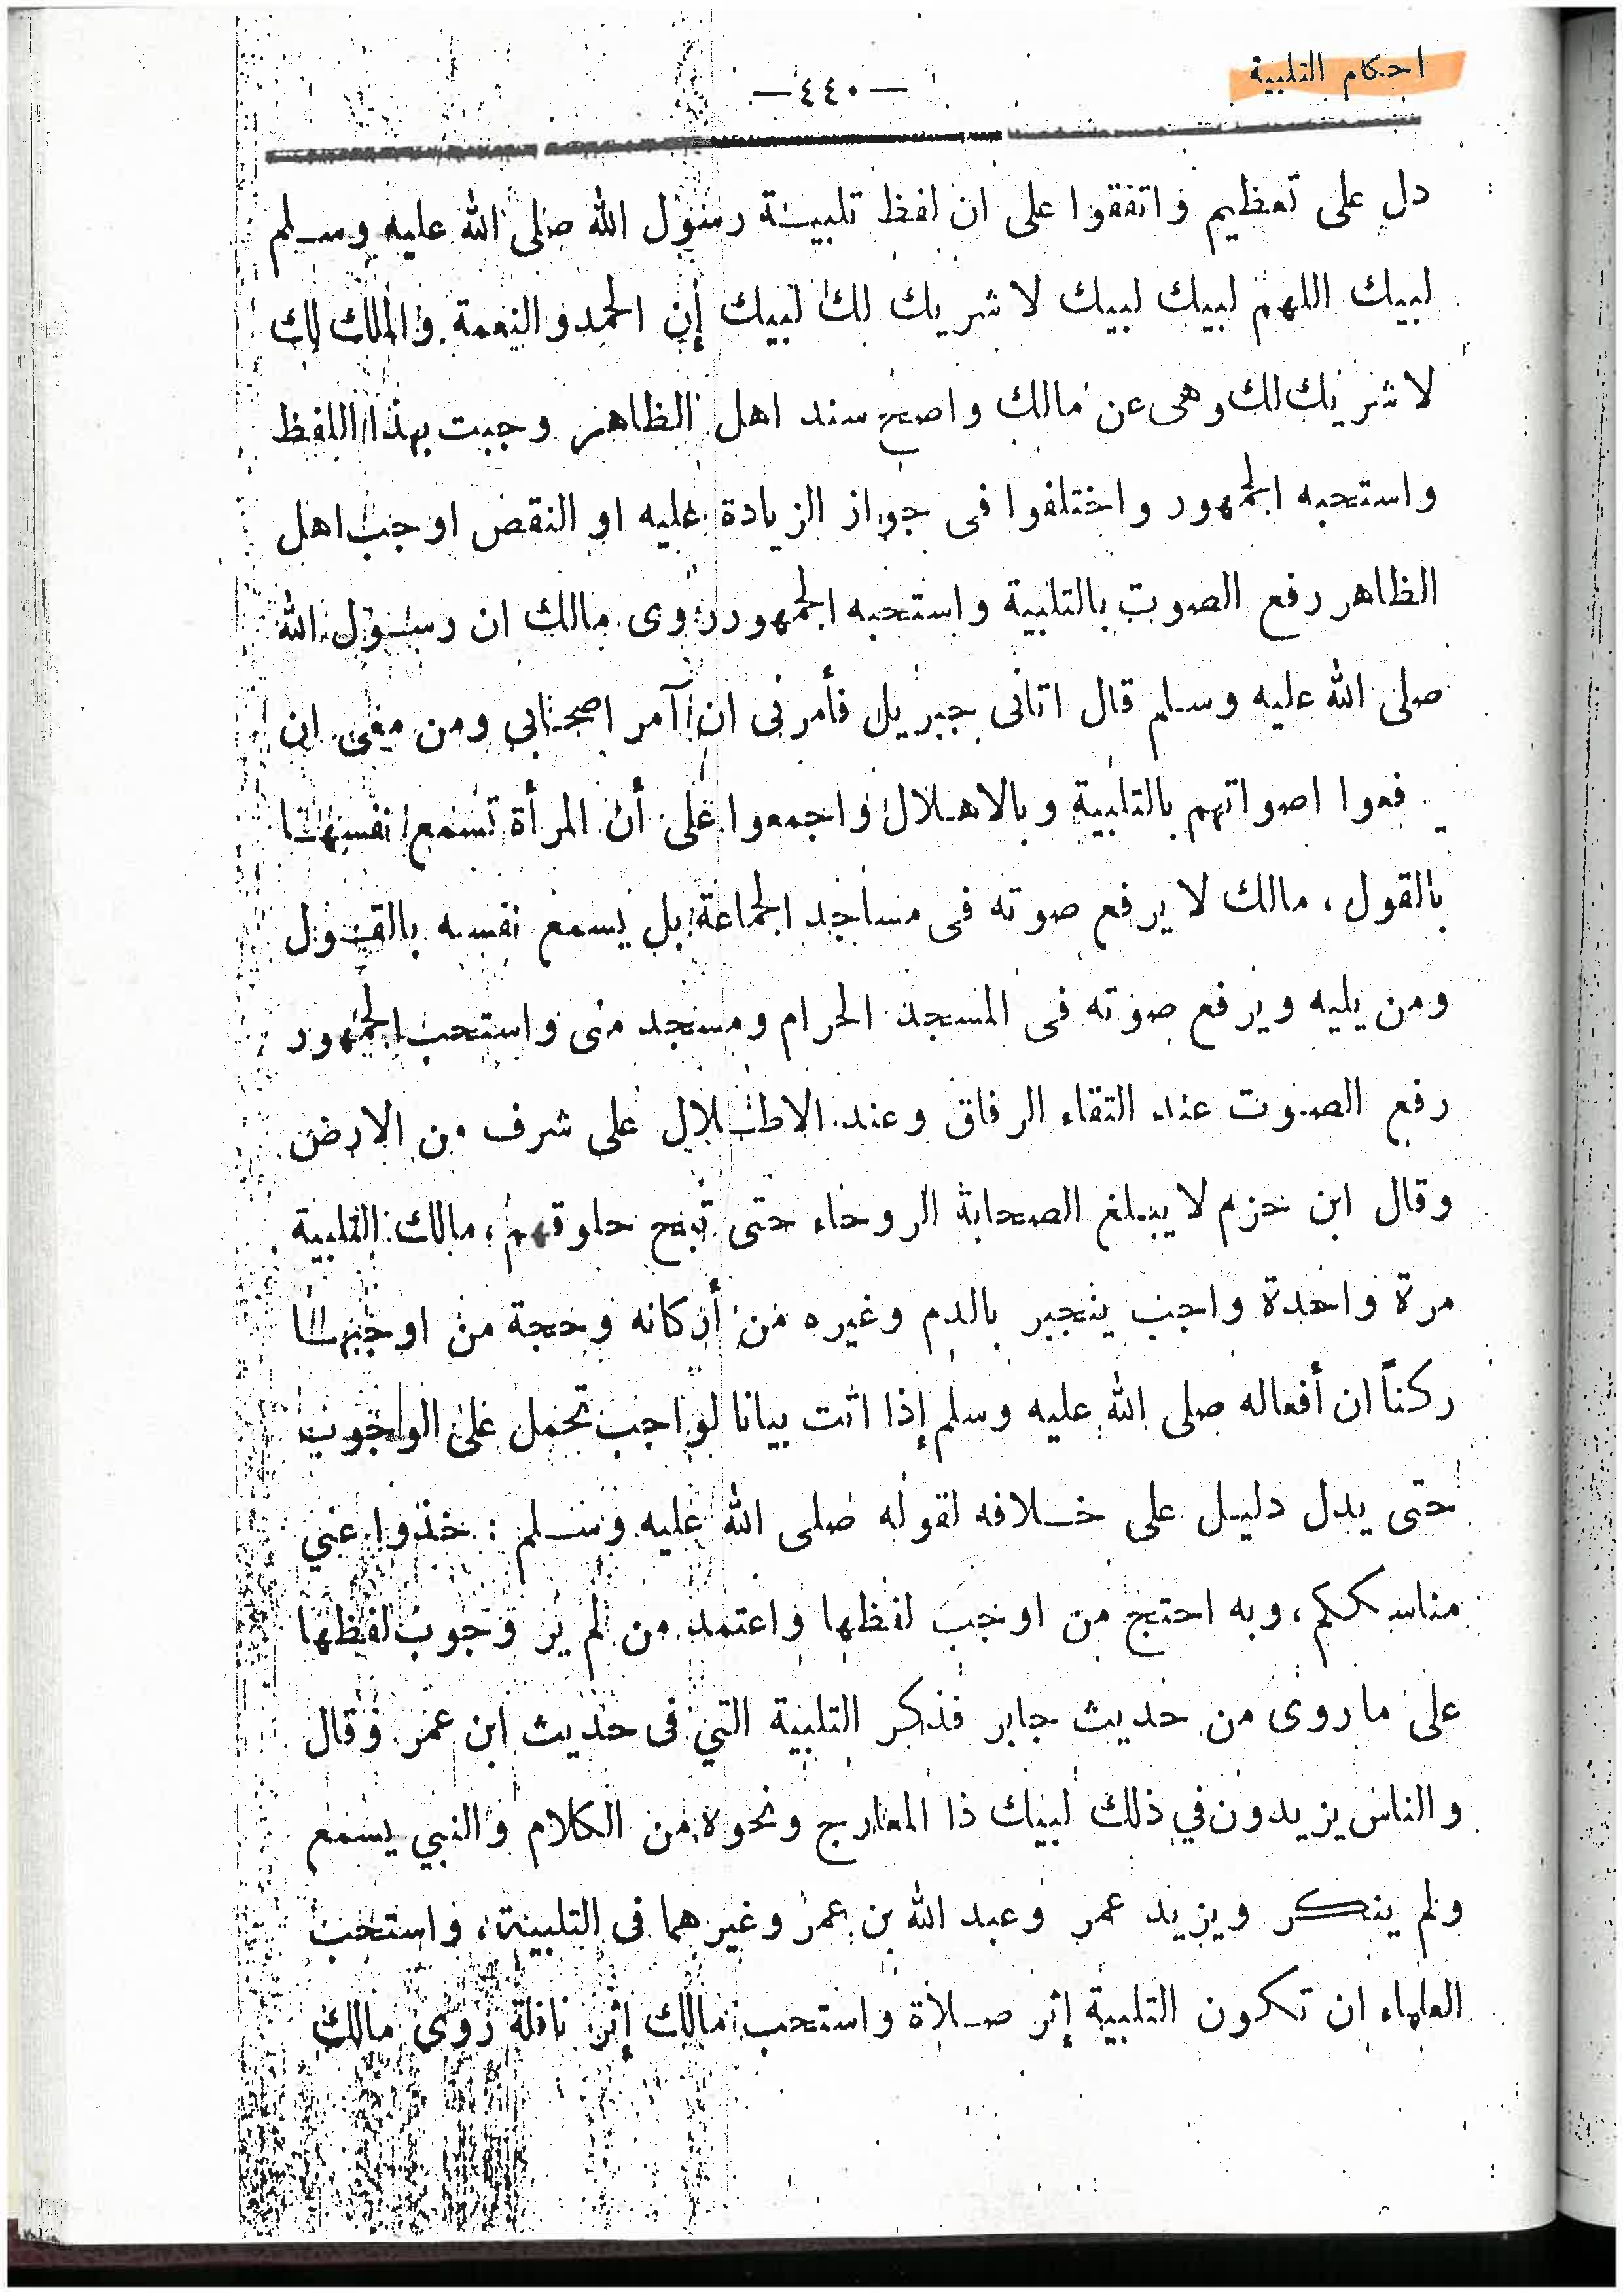 احكام التلبية
—٤٤٠—
دل على تعظيم واتفقوا على ان لفظ تلبيـة رسول الله صلى الله عليه وسـلم
لبيك اللهم لبيك لبيك لا شريك لك لبيك إن الحمد والنعمة والملك لك
لا شريك لك وهى عن مالك واصح سند اهل الظاهر وجبت بهذا اللفظ
واستحبه الجمهور واختلفوا فى جواز الزيادة عليه او النقص اوجب اهل
الظاهر رفع الصوت بالتلبية واستحبه الجمهور روى مالك ان رسـول الله
صلى الله عليه وسلم قال اتانى جبريل فأمرنى ان آمر اصحابي ومن معى ان
يرفعوا اصواتهم بالتلبية وبالاهـلال واجمعوا على أن المرأة تسمع نفسهـا
بالقول، مالك لا يرفع صوته فى مساجد الجماعة بل يسمع نفسه بالقـول
ومن يليه ويرفع صوته فى المسجد الحرام ومسجد منى واستحب الجمهور
رفع الصوت عند التقاء الرفاق وعند الاطـلال على شرف من الارض
وقال ابن حزم لا يبلغ الصحابة الروحاء حتى تبح حلوقهم، مالك التلبية
مرة واحدة واجب ينجبر بالدم وغيره من أركانه وحجة من اوجبهـا
ركناً ان أفعاله صلى الله عليه وسلم إذا اتت بيانا لواجب تحمل على الوجوب
حتى يدل دليـل على خـلافه لقوله صلى الله عليه وسـلم : خذوا عني
مناسككم، وبه احتج من اوجب لفظها واعتمد من لم ير وجوب لفظها
على ما روى من حديث جابر فذكر التلبية التي فى حديث ابن عمر وقال
والناس يزيدون في ذلك لبيك ذا المعارج ونحوه من الكلام والنبي يسمع
ولم ينكـر ويزيد عمر وعبد الله بن عمر وغيرهما فى التلبية، واستحب
العلماء ان تكون التلبية إثر صـلاة واستحب مالك إثر نافلة روى مالك